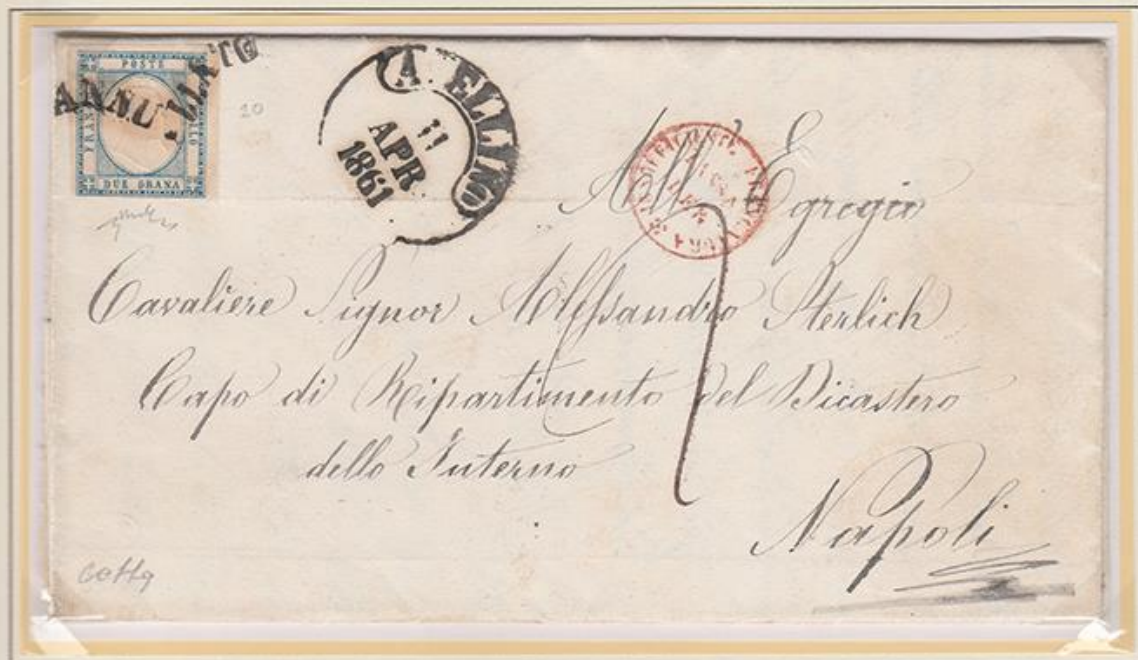 POSTE
ANNULLATO
DUE GRANA
20
AVELLINO
11
APR
1861
All' Egregio
Cavaliere Signor Alessandro Sterlich
Capo di Ripartimento del Dicastero
dello Interno
Napoli